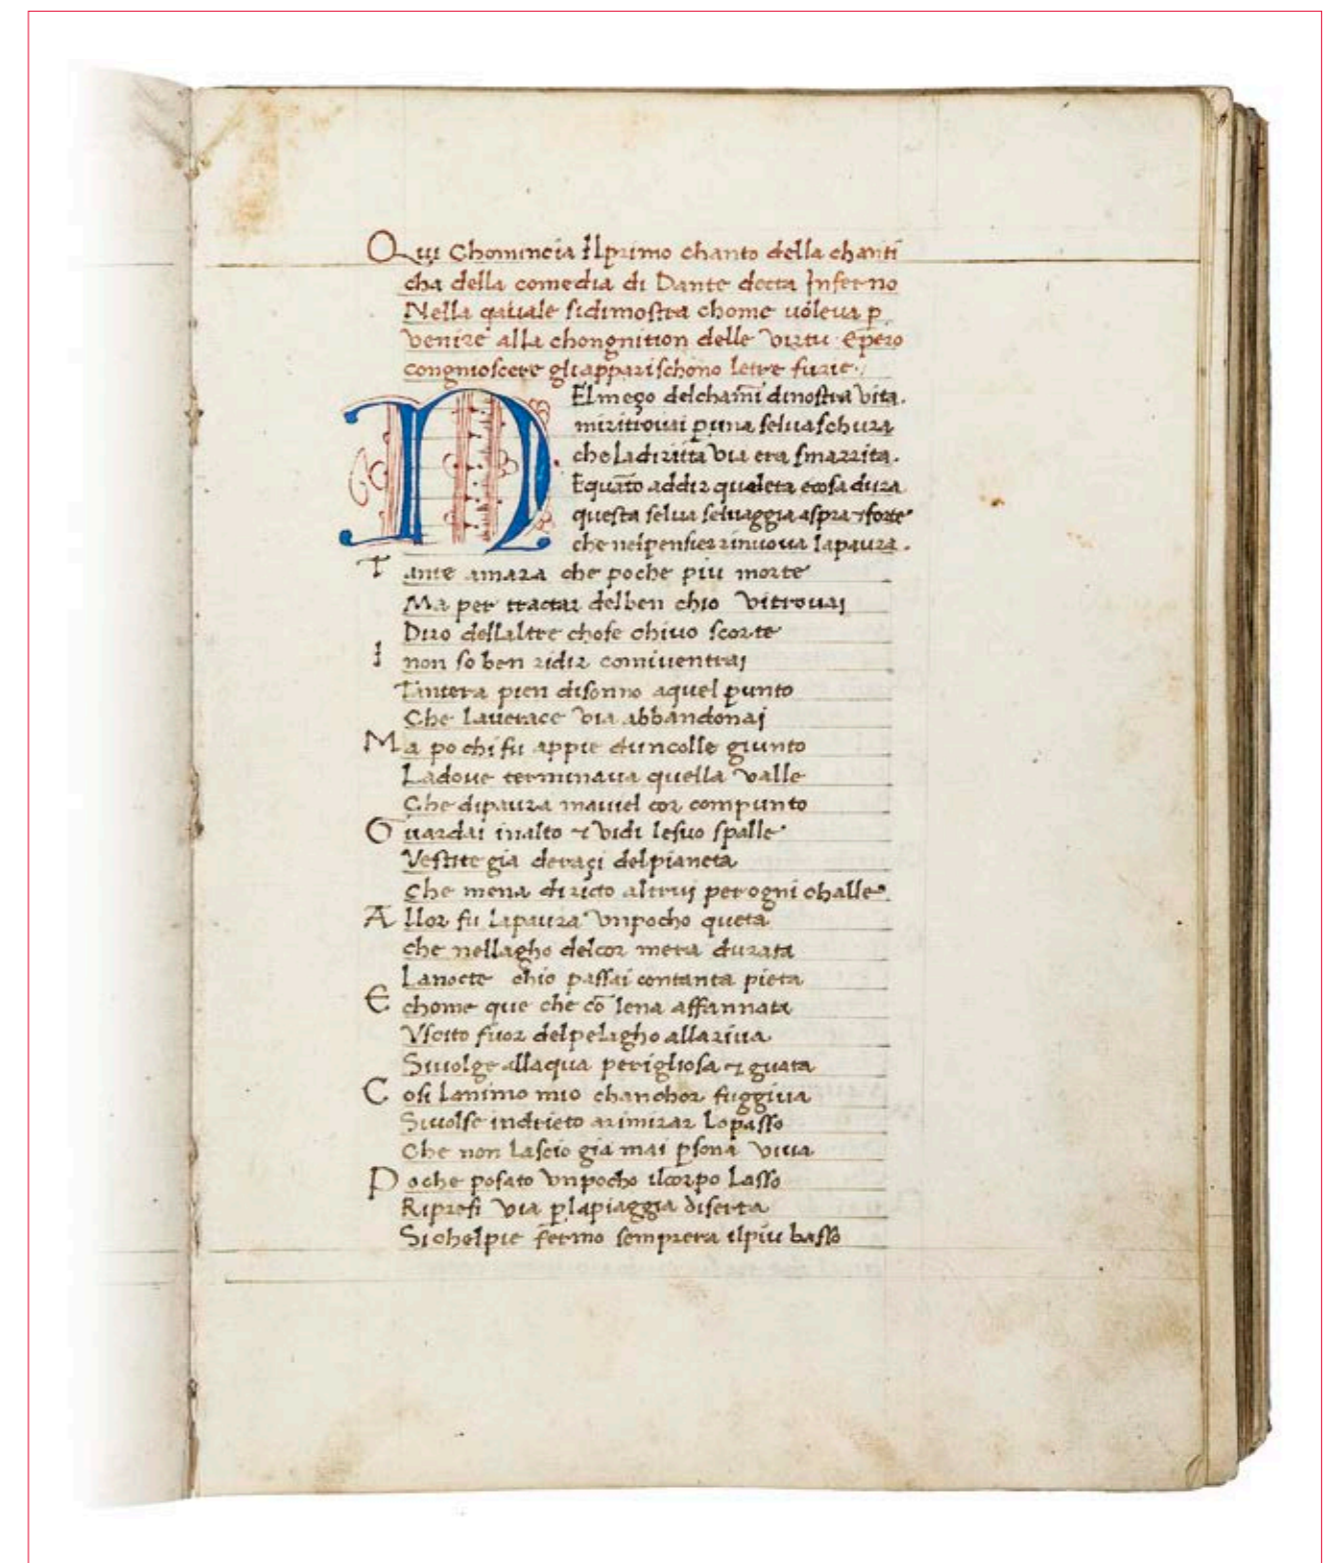 Qui Chomincia Ilprimo chanto della chanti
cha della comedia di Dante decta Inferno
Nella qauale sidimostra chome uoleua p̱
venire alla chongnition delle virtu · Ep̱ero
congnioscere gliapparischono letre furie·
NElmeço delchami̅ dinostra vita.
miritrouai p̱una seluaschura
che ladiritta via era smarrita.
Equa̅to addir qualera ecosa dura
questa selua seluaggia aspra ⁊forte
che nelpensier rinuoua lapaura.
Tante amara che poche piu morte
Ma per tractar delben chio vitrouaj
Diro dellaltre chose chiuo scorte
I non so ben ridir comiuentraj
Tantera pien disonno aquel p̱unto
Che lauerace via abbandonaj
Ma po chi fu appie duncolle giunto
Ladoue terminaua quella valle
Che dipaura mauiel cor compunto
Guardai inalto ⁊ vidi lesuo spalle
Vestite gia deraçi delpianeta
Che mena diricto altruj perogni challe.
Allor fu lapaura vnpocho queta
che nellagho delcor mera durata
Lanocte chio passai contanta pieta
Echome que che co̅ lena affannata
Vscito fuor delpelagho allariua
Siuolge allaqua perigliosa ⁊ guata
Cosi lanimo mio chanchor fuggiua
Siuolse indrieto arimirar lopasso
Che non lascio gia mai p̱sona viua
Poche posato vnpocho ilcorpo lasso
Ripresi via p̱lapiaggia diserta
Sichelpie fermo semprera ilpiu basso